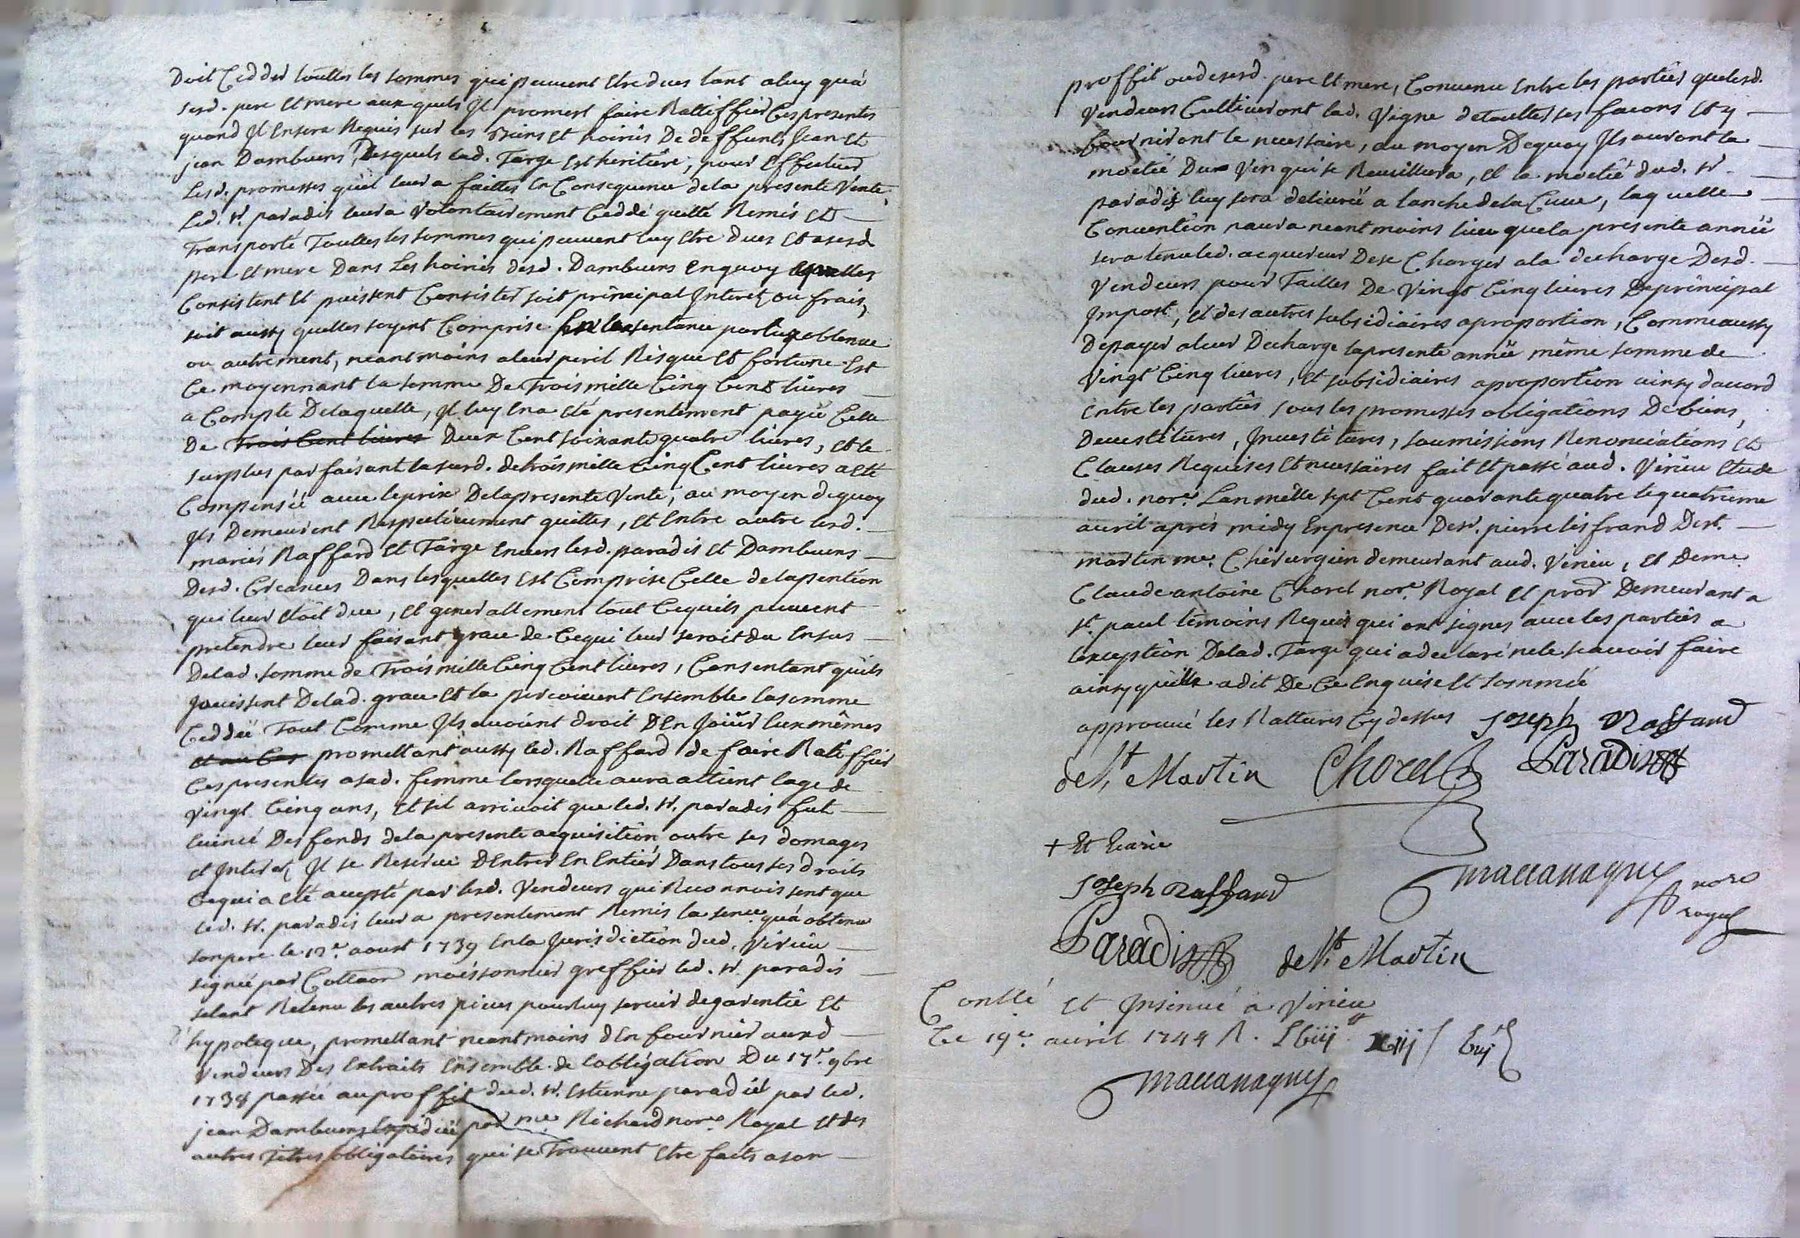 Doit Cedder touttes les sommes qui peuvent Etre dues tant a luy qu'a
sesd. pere Et mere aux quels Il promest faire Rattiffier Ces presentes
quand Il En sera Requis sur les Biens Et hoiries De deffunts Jean Et
jean Dambuens, desquels lad. Targe Est heritiere, pour Effectuer
Lesd. promesses quil leur a faittes En Consequence de la presente Vente,
Led. Sr. paradis leur a Volontairement Ceddé quitté Remis Et
Transporté Touttes les sommes qui peuvent luy Etre dues Et a sesd.
pere Et mere Dans Les hoiries desd. Dambuens En quoy qu'elles
Consistent Et puissent Consister soit principal Interetz ou frais,
soit aussy quelles soyent Comprise En la sentance par luy obtenue
ou autrement, neantmoins a leur peril Risque Et fortune Est
Ce moyennant la somme De Trois mille Cinq Cent livres
a Compte De laquelle, Il luy En a Eté presentement payé Celle
De Trois Cent livres Deux Cent soixante quatre livres, Et le
surplus parfaisant lasusd. de trois mille Cinq Cent livres a Eté
Compensée avec le prix De la presente Vente, au moyen de quoy
Ils Demeurent Respectivement quittes, Et Entre autre lesd.
mariés Raffard Et Targe Envers lesd. paradis Et Dambuens
Desd. Creances Dans lesquelles Est Comprise Celle de la pention
qui leur Etoit due, Et generallement tout Ce quils peuvent
pretendre leur faisant grace de Ce qui leur seroit du En sus
De lad. somme de Trois mille Cinq Cent livres, Consentant quils
Jouissent De lad. grace Et la percoivent Ensemble la somme
Ceddée Tout Comme Ils avoint droit D'En Jouir Eux mêmes
promettant aussy led. Raffard de faire Ratiffier
Ces presentes a sad. femme lorsquelle aura attient l'age de
Vingt Cinq ans, Et sil arrivoit que led. Sr. paradis fut
Evincé Des fonds de la presente acquisition outre ses domages
et Interetz Il se Reserve D'Entrer En Entier Dans tous ses droits
Ce qui a Eté accepté par lesd. Vendeurs qui Reconnoissent que
led. Sr. paradis leur a presentement Remis la sence qu'a obtenu
son pere le 12e. aoust 1739 En la Jurisdiction dud. Virieu
signée par Moissonnier greffier led. Sr. paradis
setant Retenu les autres pieces pour luy servir de garentie Et
hypoteque, promettant neantmoins d'En fournir auxd.
Vendeurs Des Extraits Ensemble de l'obligation Du 17e. 9bre
1738 passée au proffit dud. Sr. Estienne paradis par led.
jean Dambuens Expediée par me Richard nore. Royal Et des
autres Titres obligatoires qui se Trouvent Etre faits a son
proffit ou de sesd. pere Et mere, Convenu Entre les parties que lesd.
Vendeurs Cultiveront lad. Vigne de touttes ses facons Et y
fourniront le necessaire, au moyen De quoy Ils auront la
moetié Du Vin qui se Reueillera, Et la moetié dud. Sr.
paradis luy sera delivrée a l'anche de la Cuve, laquelle
Convention n'aura neantmoins lieu que la presente année
sera tenu led. acquereur De se Charger a la decharge Desd.
Vendeurs pour Tailles De Vingt Cinq livres De principal
Impost, Et des autres subsidiaires a proportion, Comme aussy
De payer a leur Decharge la presente année même somme de
Vingt Cinq livres, Et subsidiaires a proportion ainsy d'acord
Entre les parties sous les promesses obligations De biens,
Devestitures, Investitures, soumissions Renonciations Et
Clauses Requises Et necessaires fait Et passé aud. Virieu Etude
dud. nore. L'an mille sept Cent quarante quatre le quatrieme
avril apres midy En presence De sr. pierre lisfrand De st.
martin me. Chirurgien demeurant aud. Virieu, Et de me.
Claude antoine Chorel nore. Royal Et procr. Demeurant a
st. paul temoins Requis qui ont signes avec les parties a
l'exception De lad. Targe qui a declaré ne le scavoir faire
ainsy qu'elle a dit De Ce Enquise Et sommée
approuvé les Rattures Cy dessus Joseph Raffard
de St Martin Chorel Paradis
+ Et
Joseph Raffard
Maccanaguy nore
royal
Paradis de St Martin
Conllé Et Insinué a Virieu
Le 19e. avril 1744 R.
Maccanaguy